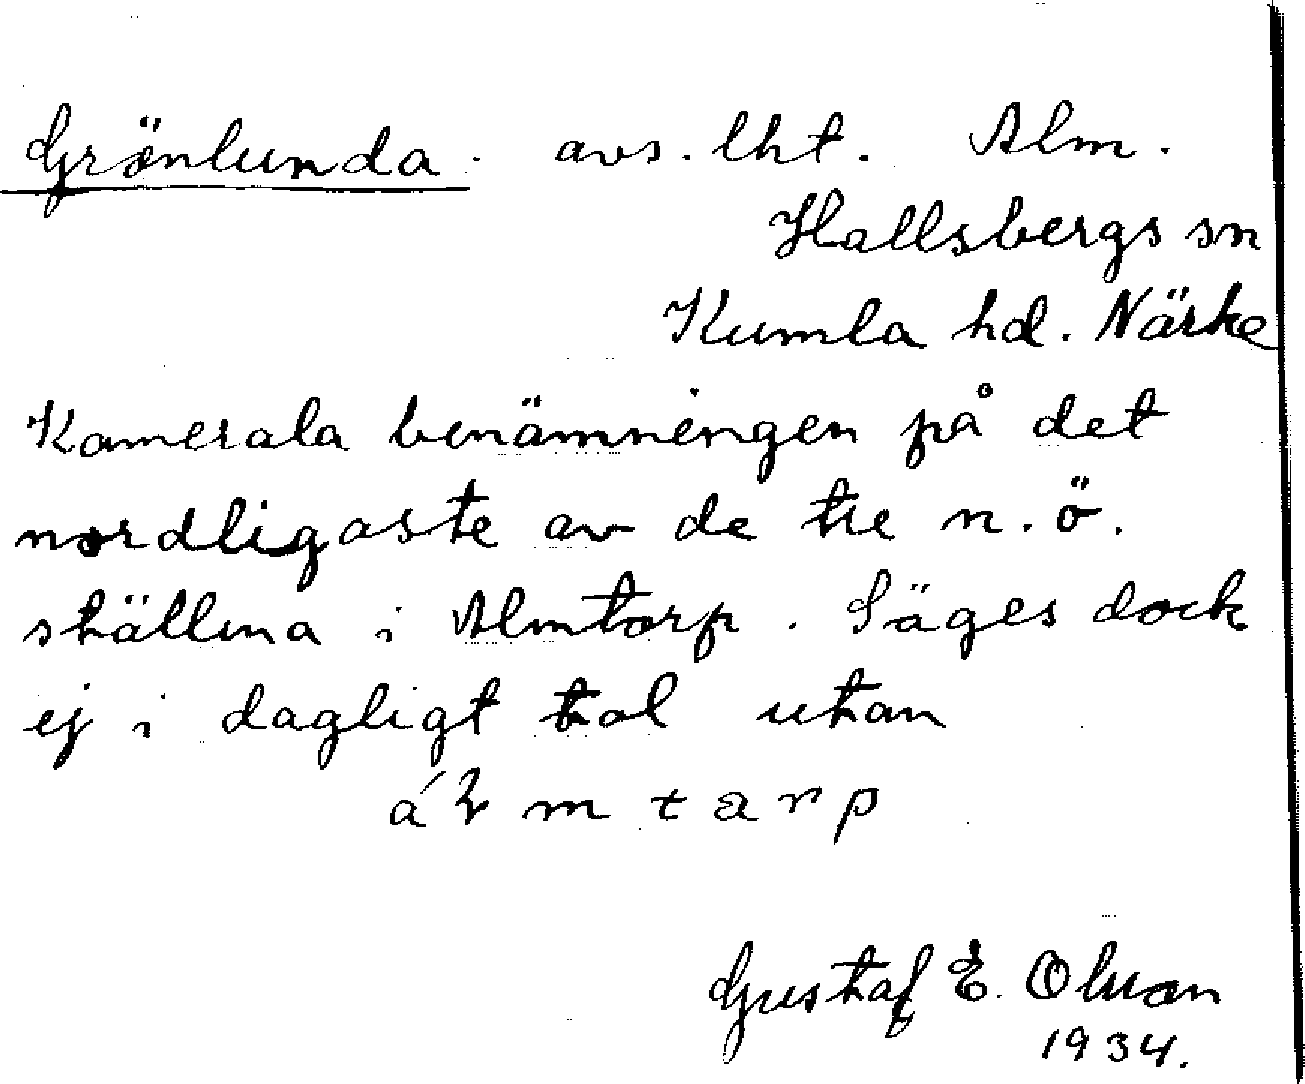 Grönlunda. avs. lht. Alm.
Hallsbergs sn
Kumla hd. Närke
Kamerala benämningen på det
nordligaste av de tre n. ö.
ställena i Almtorp. Säges dock
ej i dagligt tal utan
m t a r p
Gustaf E. Olsson
1934.